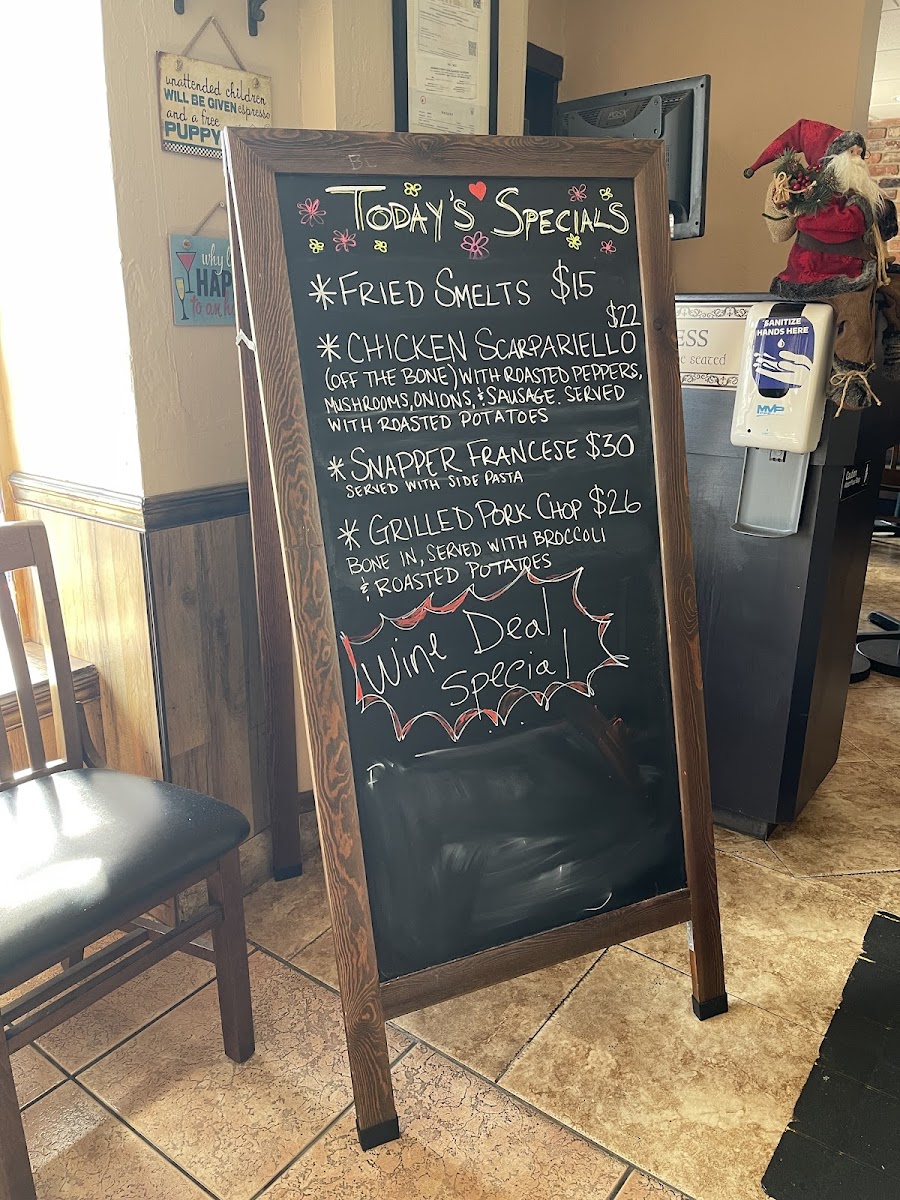 unattended children
WILL BE GIVEN espresso
and a free
PUPPY
why l
HAP
to an h
TODAY'S SPECIALS
* FRIED SMELTS $15
$22
* CHICKEN SCARPARIELLO
(OFF THE BONE) WITH ROASTED PEPPERS,
MUSHROOMS, ONIONS, & SAUSAGE. SERVED
WITH ROASTED POTATOES
* SNAPPER FRANCESE $30
SERVED WITH SIDE PASTA
* GRILLED PORK CHOP $26
BONE IN, SERVED WITH BROCCOLI
& ROASTED POTATOES
Wine Deal
Special
ESS
e seated
SANITIZE
HANDS HERE
MVP